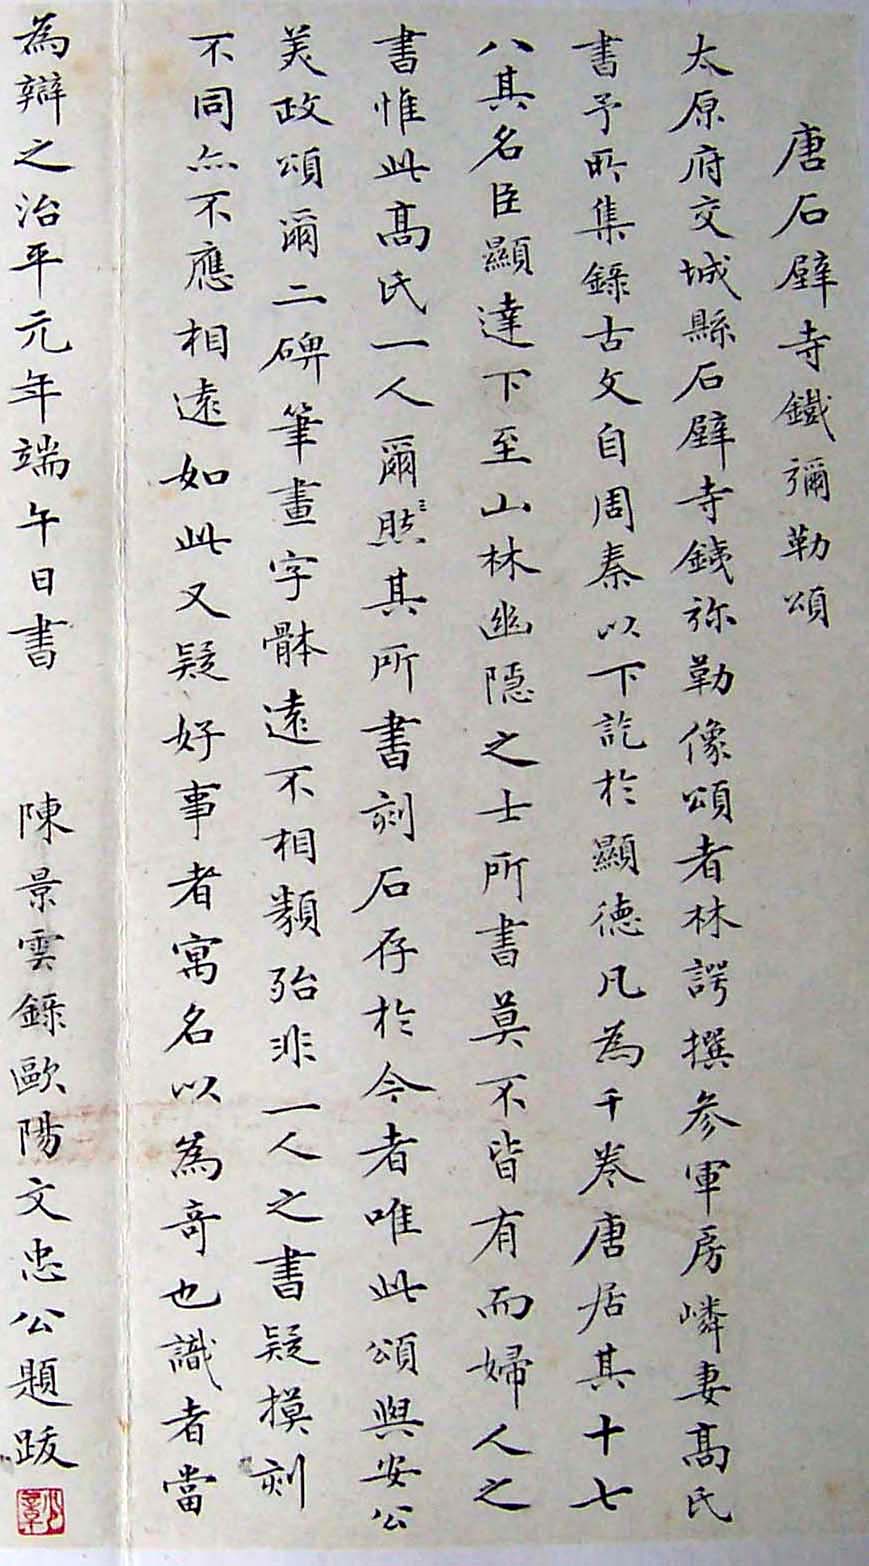 唐石壁寺鐵彌勒頌
太原府交城縣石壁寺鐵弥勒像頌者林諤撰参軍房嶙妻髙氏
書予所集錄古文自周秦以下訖於顯德凡為千卷唐居其十七
八其名臣顯達下至山林幽隱之士所書莫不皆有而婦人之
書惟此髙氏一人爾然其所書刻石存於今者唯此頌與安公
美政頌爾二碑筆畫字體遠不相類殆非一人之書疑摸刻
不同亦不應相遠如此又疑好事者寓名以為奇也識者當
為辯之治平元年端午日書
陳景雲錄歐陽文忠公題跋